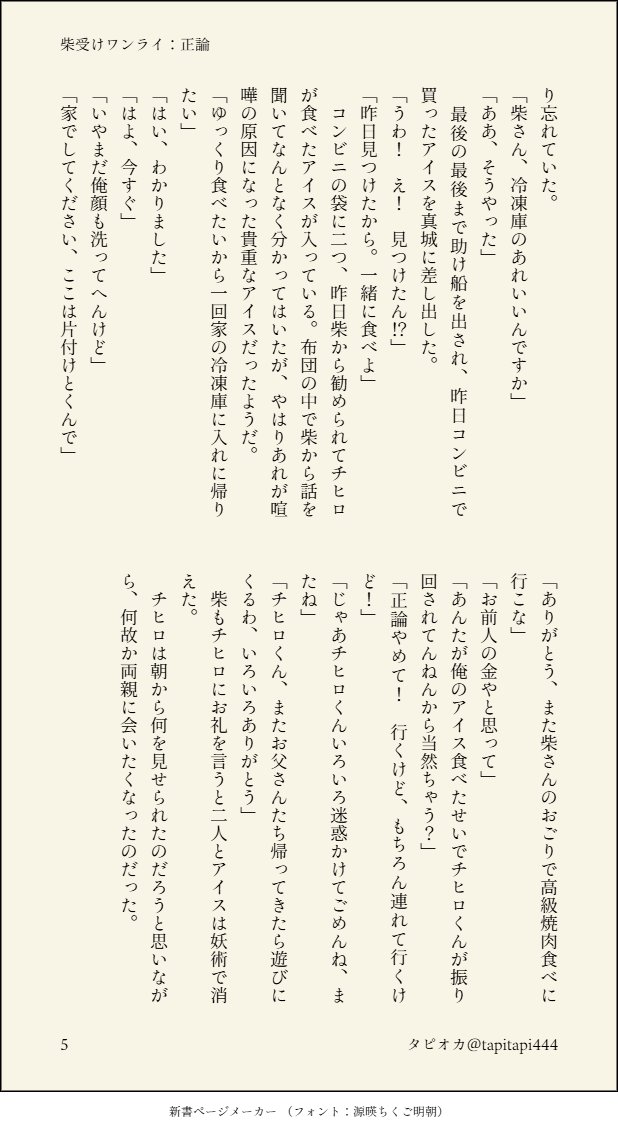 柴受けワンライ：正論
り忘れていた。
「柴さん、冷凍庫のあれいいんですか」
「ああ、そうやった」
　最後の最後まで助け船を出され、昨日コンビニで
買ったアイスを真城に差し出した。
「うわ！　え！　見つけたん!?」
「昨日見つけたから。一緒に食べよ」
　コンビニの袋に二つ、昨日柴から勧められてチヒロ
が食べたアイスが入っている。布団の中で柴から話を
聞いてなんとなく分かってはいたが、やはりあれが喧
嘩の原因になった貴重なアイスだったようだ。
「ゆっくり食べたいから一回家の冷凍庫に入れに帰り
たい」
「はい、わかりました」
「はよ、今すぐ」
「いやまだ俺顔も洗ってへんけど」
「家でしてください、ここは片付けとくんで」
「ありがとう、また柴さんのおごりで高級焼肉食べに
行こな」
「お前人の金やと思って」
「あんたが俺のアイス食べたせいでチヒロくんが振り
回されてんねんから当然ちゃう？」
「正論やめて！　行くけど、もちろん連れて行くけ
ど！」
「じゃあチヒロくんいろいろ迷惑かけてごめんね、ま
たね」
「チヒロくん、またお父さんたち帰ってきたら遊びに
くるわ、いろいろありがとう」
　柴もチヒロにお礼を言うと二人とアイスは妖術で消
えた。
　チヒロは朝から何を見せられたのだろうと思いなが
ら、何故か両親に会いたくなったのだった。
5
タピオカ@tapitapi444
新書ページメーカー （フォント：源暎ちくご明朝）